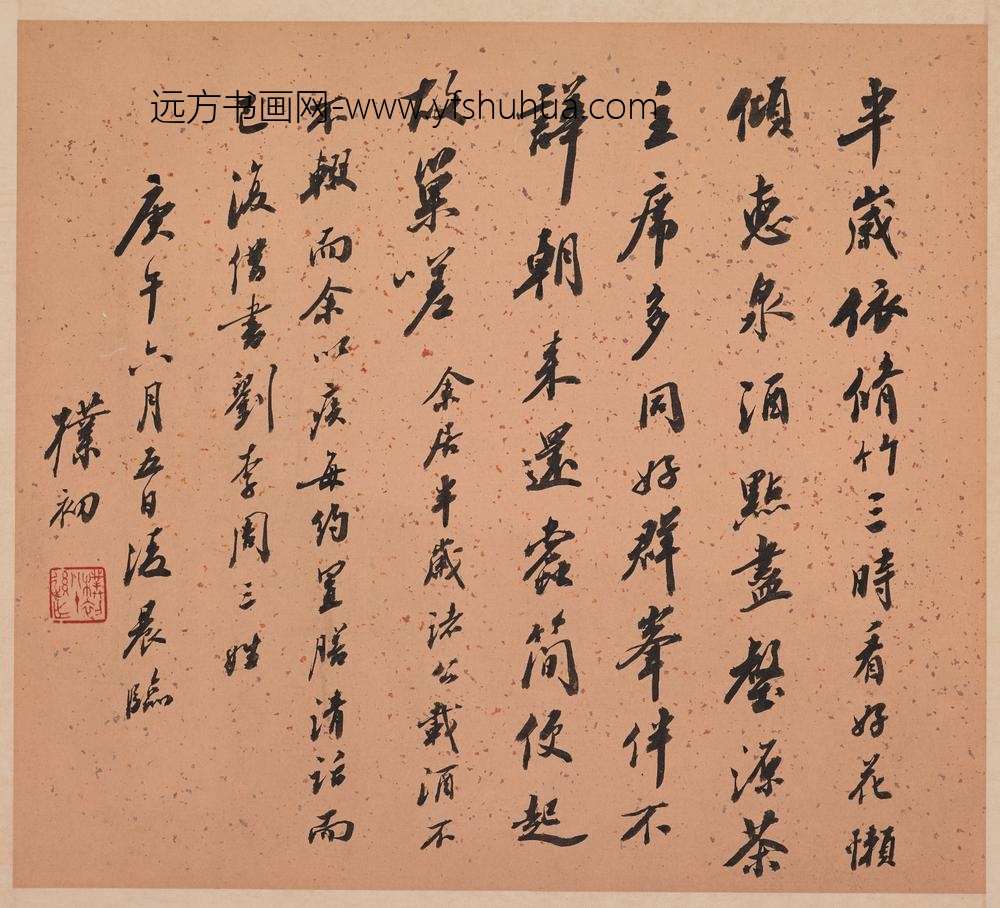 半歲依脩竹三時看好花懶
傾惠泉酒點盡壑源茶
主席多同好群峯伴不
譁朝來還蠹簡便起
故巢嗟 余居半歲諸公載酒不
不輟而余以疾每約置膳清話而
已復借書劉李周三姓
庚午六月五日淩晨臨
樸初
远方书画网-www.yfshuhua.com